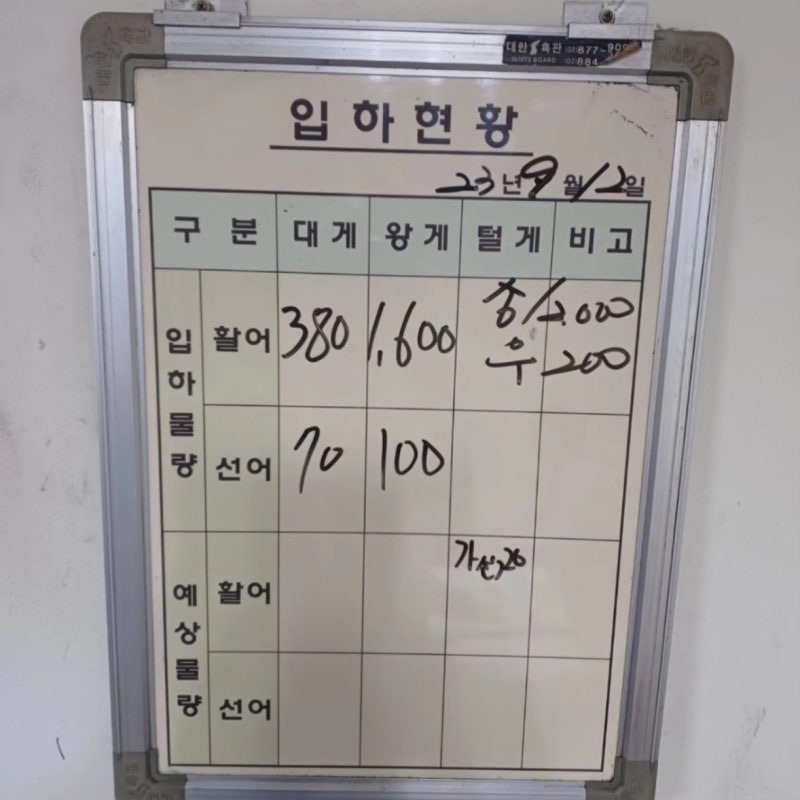 대한 흑판 (02)877-909
WHITE BOARD (02)884
입하현황
23년 9월 12일
구분 대게 왕게 털게 비고
입하물량
활어 380 1,600 총 12,000
우 200
선어 70 100
예상물량
활어
선어